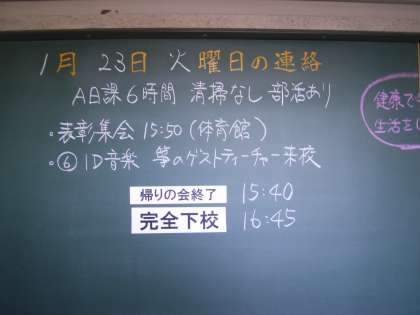 1月 23日 火曜日の連絡
A日課6時間 清掃なし 部活あり
・表彰集会 15:50(体育館)
・⑥ 1D音楽 箏のゲストティーチャー来校
帰りの会終了 15:40
完全下校 16:45
健康で
生活をし